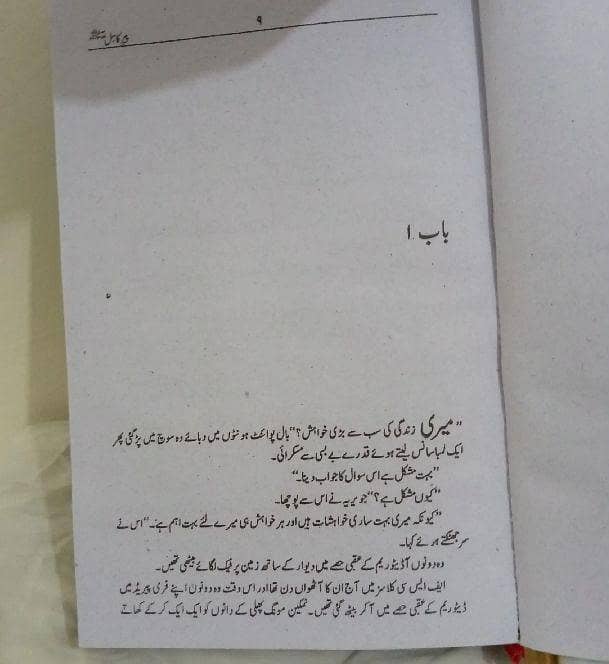 ۹
پیر کامل ﷺ
باب ۱
”میری زندگی کی سب سے بڑی خواہش؟“ بال پوائنٹ ہونٹوں میں دبائے وہ سوچ میں پڑ گئی پھر
ایک لمبا سانس لیتے ہوئے قدرے بے بسی سے مسکرائی۔
”بہت مشکل ہے اس سوال کا جواب دینا۔“
”کیوں مشکل ہے؟“ جویریہ نے اس سے پوچھا۔
”کیونکہ میری بہت ساری خواہشات ہیں اور ہر خواہش ہی میرے لئے بہت اہم ہے۔“ اس نے
سر جھٹکتے ہوئے کہا۔
وہ دونوں آڈیٹوریم کے عقبی حصے میں دیوار کے ساتھ زمین پر ٹیک لگائے بیٹھی تھیں۔
ایف ایس سی کلاسز میں آج ان کا آٹھواں دن تھا اور اس وقت وہ دونوں اپنے فری پیریڈ میں
ڈیٹوریم کے عقبی حصے میں آکر بیٹھ گئی تھیں۔ نمکین مونگ پھلی کے دانوں کو ایک ایک کر کے کھاتے